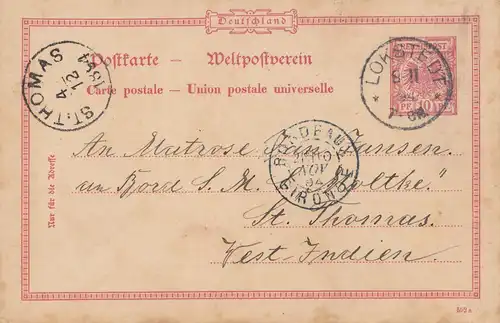 Deutschland
Postkarte – Weltpostverein
Carte postale – Union postale universelle
ST. THOMAS
4 12
1894
LOKSTEDT
8 11
7-8N
PF 10 PF
BORDEAUX
NOV
94
GIRONDE
Nur für die Adresse
An Matrose Hansen.
an Bord S. M. "Moltke"
St. Thomas.
West-Indien.